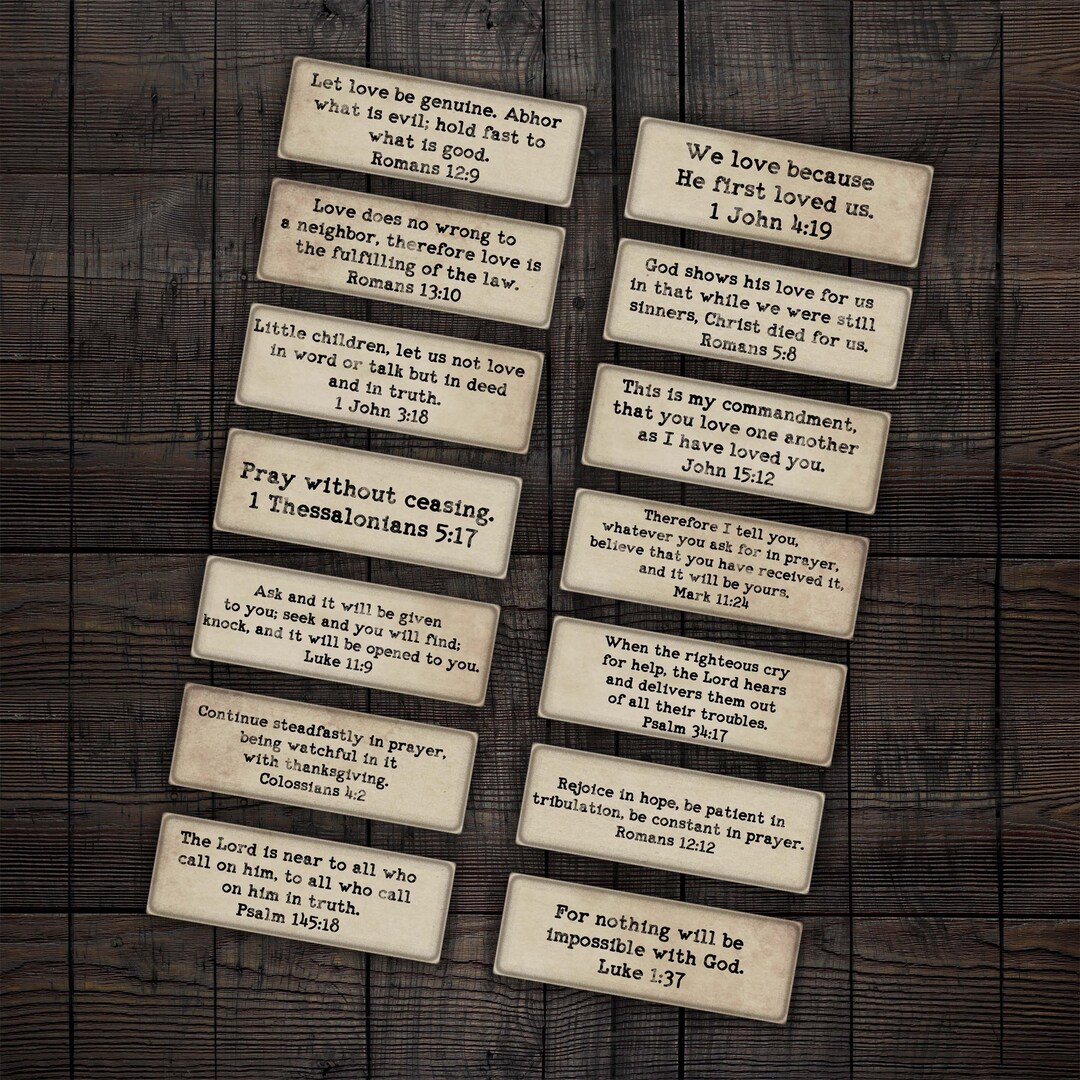 Let love be genuine. Abhor
what is evil; hold fast to
what is good.
Romans 12:9
Love does no wrong to
a neighbor, therefore love is
the fulfilling of the law.
Romans 13:10
Little children, let us not love
in word or talk but in deed
and in truth.
1 John 3:18
Pray without ceasing.
1 Thessalonians 5:17
Ask and it will be given
to you; seek and you will find;
knock, and it will be opened to you.
Luke 11:9
Continue steadfastly in prayer,
being watchful in it
with thanksgiving.
Colossians 4:2
The Lord is near to all who
call on him, to all who call
on him in truth.
Psalm 145:18
We love because
He first loved us.
1 John 4:19
God shows his love for us
in that while we were still
sinners, Christ died for us.
Romans 5:8
This is my commandment,
that you love one another
as I have loved you.
John 15:12
Therefore I tell you,
whatever you ask for in prayer,
believe that you have received it,
and it will be yours.
Mark 11:24
When the righteous cry
for help, the Lord hears
and delivers them out
of all their troubles.
Psalm 34:17
Rejoice in hope, be patient in
tribulation, be constant in prayer.
Romans 12:12
For nothing will be
impossible with God.
Luke 1:37